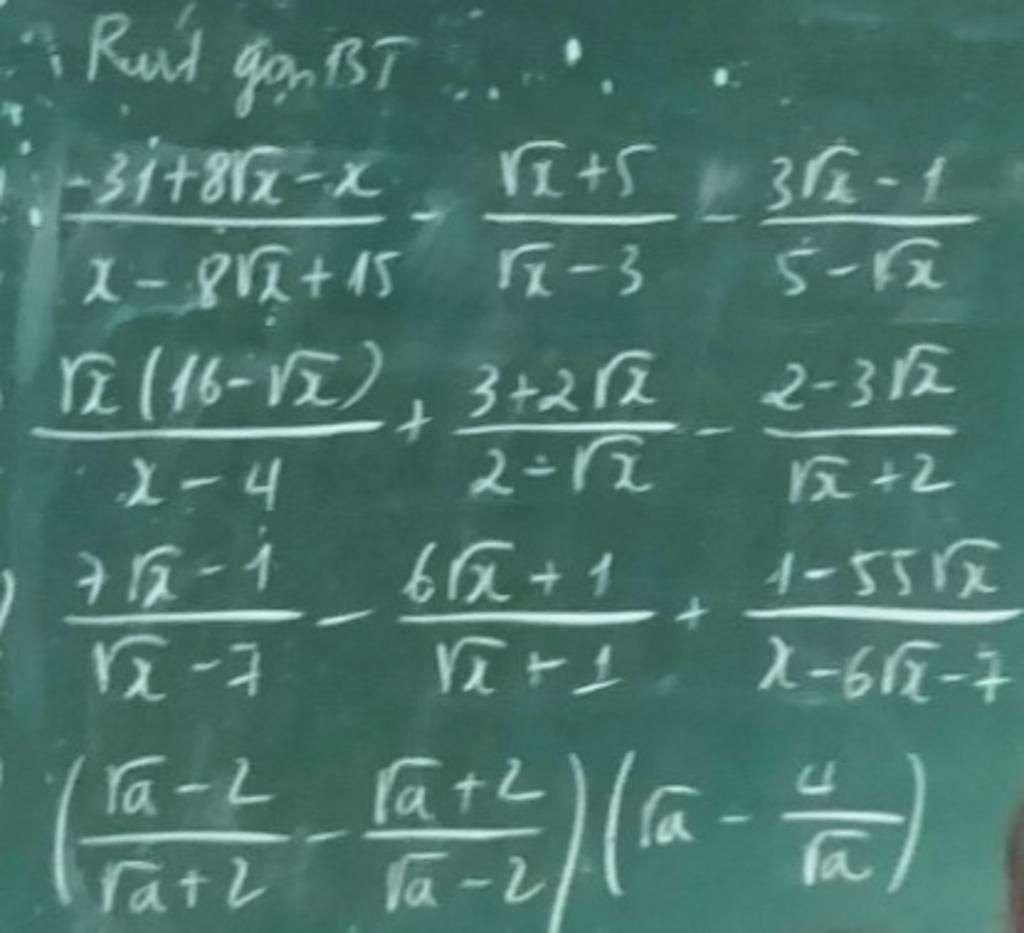 Rút gọn BT
(-31+8√x-x)/(x-8√x+15) - (√x+5)/(√x-3) - (3√x-1)/(5-√x)
(√x(16-√x))/(x-4) + (3+2√x)/(2-√x) - (2-3√x)/(√x+2)
) (7√x-1)/(√x-7) - (6√x+1)/(√x+1) + (1-55√x)/(x-6√x-7)
((√a-2)/(√a+2) - (√a+2)/(√a-2))(√a - 4/√a)